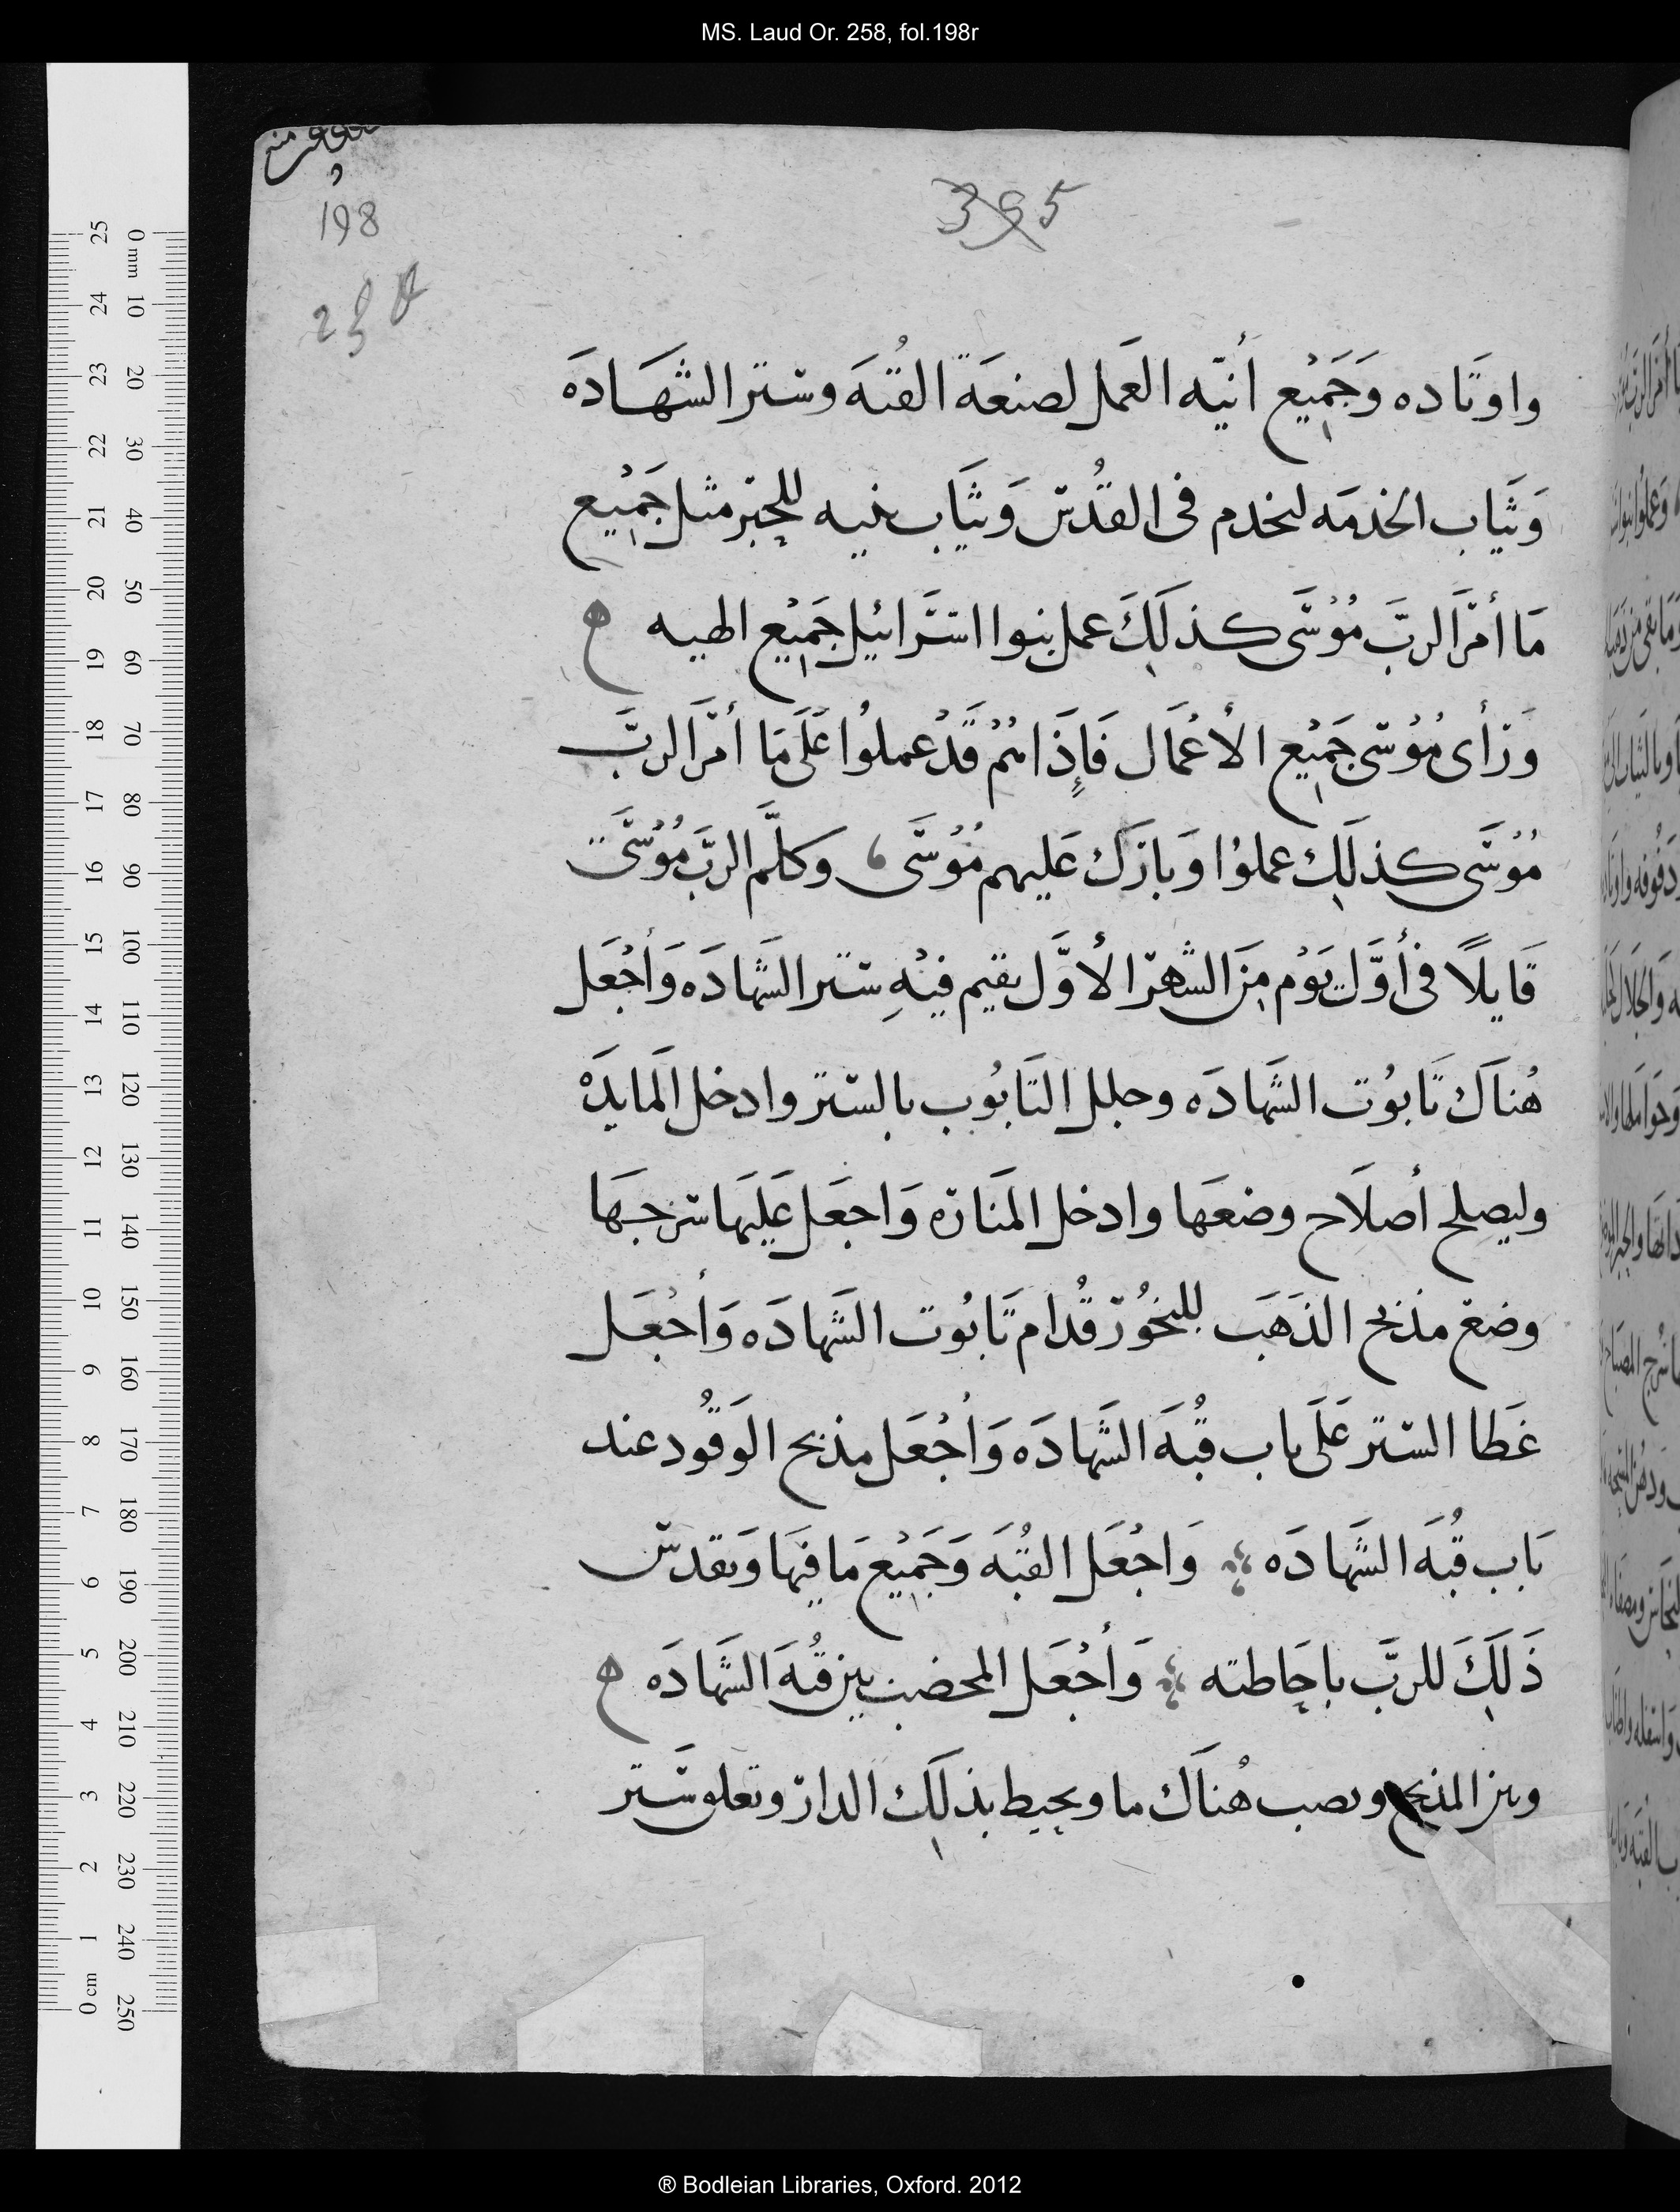 MS. Laud Or. 258, fol.198r
198
395
واوتاده وَجَميْع أنيّه العَمل لصنعَة القُبَه وستر الشهَادَه
وَثيَاب الخدمَه ليخدم فى القُدّس وَثيَاب بنيه للحبْر مثل جَميْع
مَا أمَر الربَّ مُوْسَى كذلَكَ عمل بنوا اسَرَائيْل جَميْع الهيه
وَرَأى مُوْسى جَميْع الأعْمَال فَإذَا هُمْ قَدْ عملوُا عَلَى مَا أمَر الربَّ
مُوْسَى كذلَك عملوُا وَبارَك عَليهم مُوْسَى وكلَّم الربَّ مُوْسَى
قَايلًا فى أوَّل يَوْم مِنَ الشَهْر الأوَّل يقيم فيْهِ ستر الشَهادَه وَأجْعَل
هُنَاك تَابوُت الشَهادَه وجلل التَابوُب بالستر وادخل المَايدَهْ
وليصلح أصلَاح وضعَها وادخل المَنَارَه وَاجعَل عَليَها سرجهَا
وضع مذبح الذهَب للبخُوْر قُدام تَابوُت الشَهادَه وَأجْعَل
غَطا الستر عَلَى باب قُبَة الشَهادَه وَأجْعَل مذبح الوَقوُد عند
بَاب قُبَة الشَهادَه وَاجْعَل القبُه وَجَميْع مَا فيَها وَيقدس
ذَلَكَ للربَّ باحَاطته وَأجْعَل المحضب بين قُبَة الشَهادَه
وبين المذبح وصب هُنَاك ما ويحيط بذلَك الدار وتعلو سَتر
0 mm 10 20 30 40 50 60 70 80 90 100 110 120 130 140 150 160 170 180 190 200 210 220 230 240 250
25 24 23 22 21 20 19 18 17 16 15 14 13 12 11 10 9 8 7 6 5 4 3 2 1 0 cm
® Bodleian Libraries, Oxford. 2012